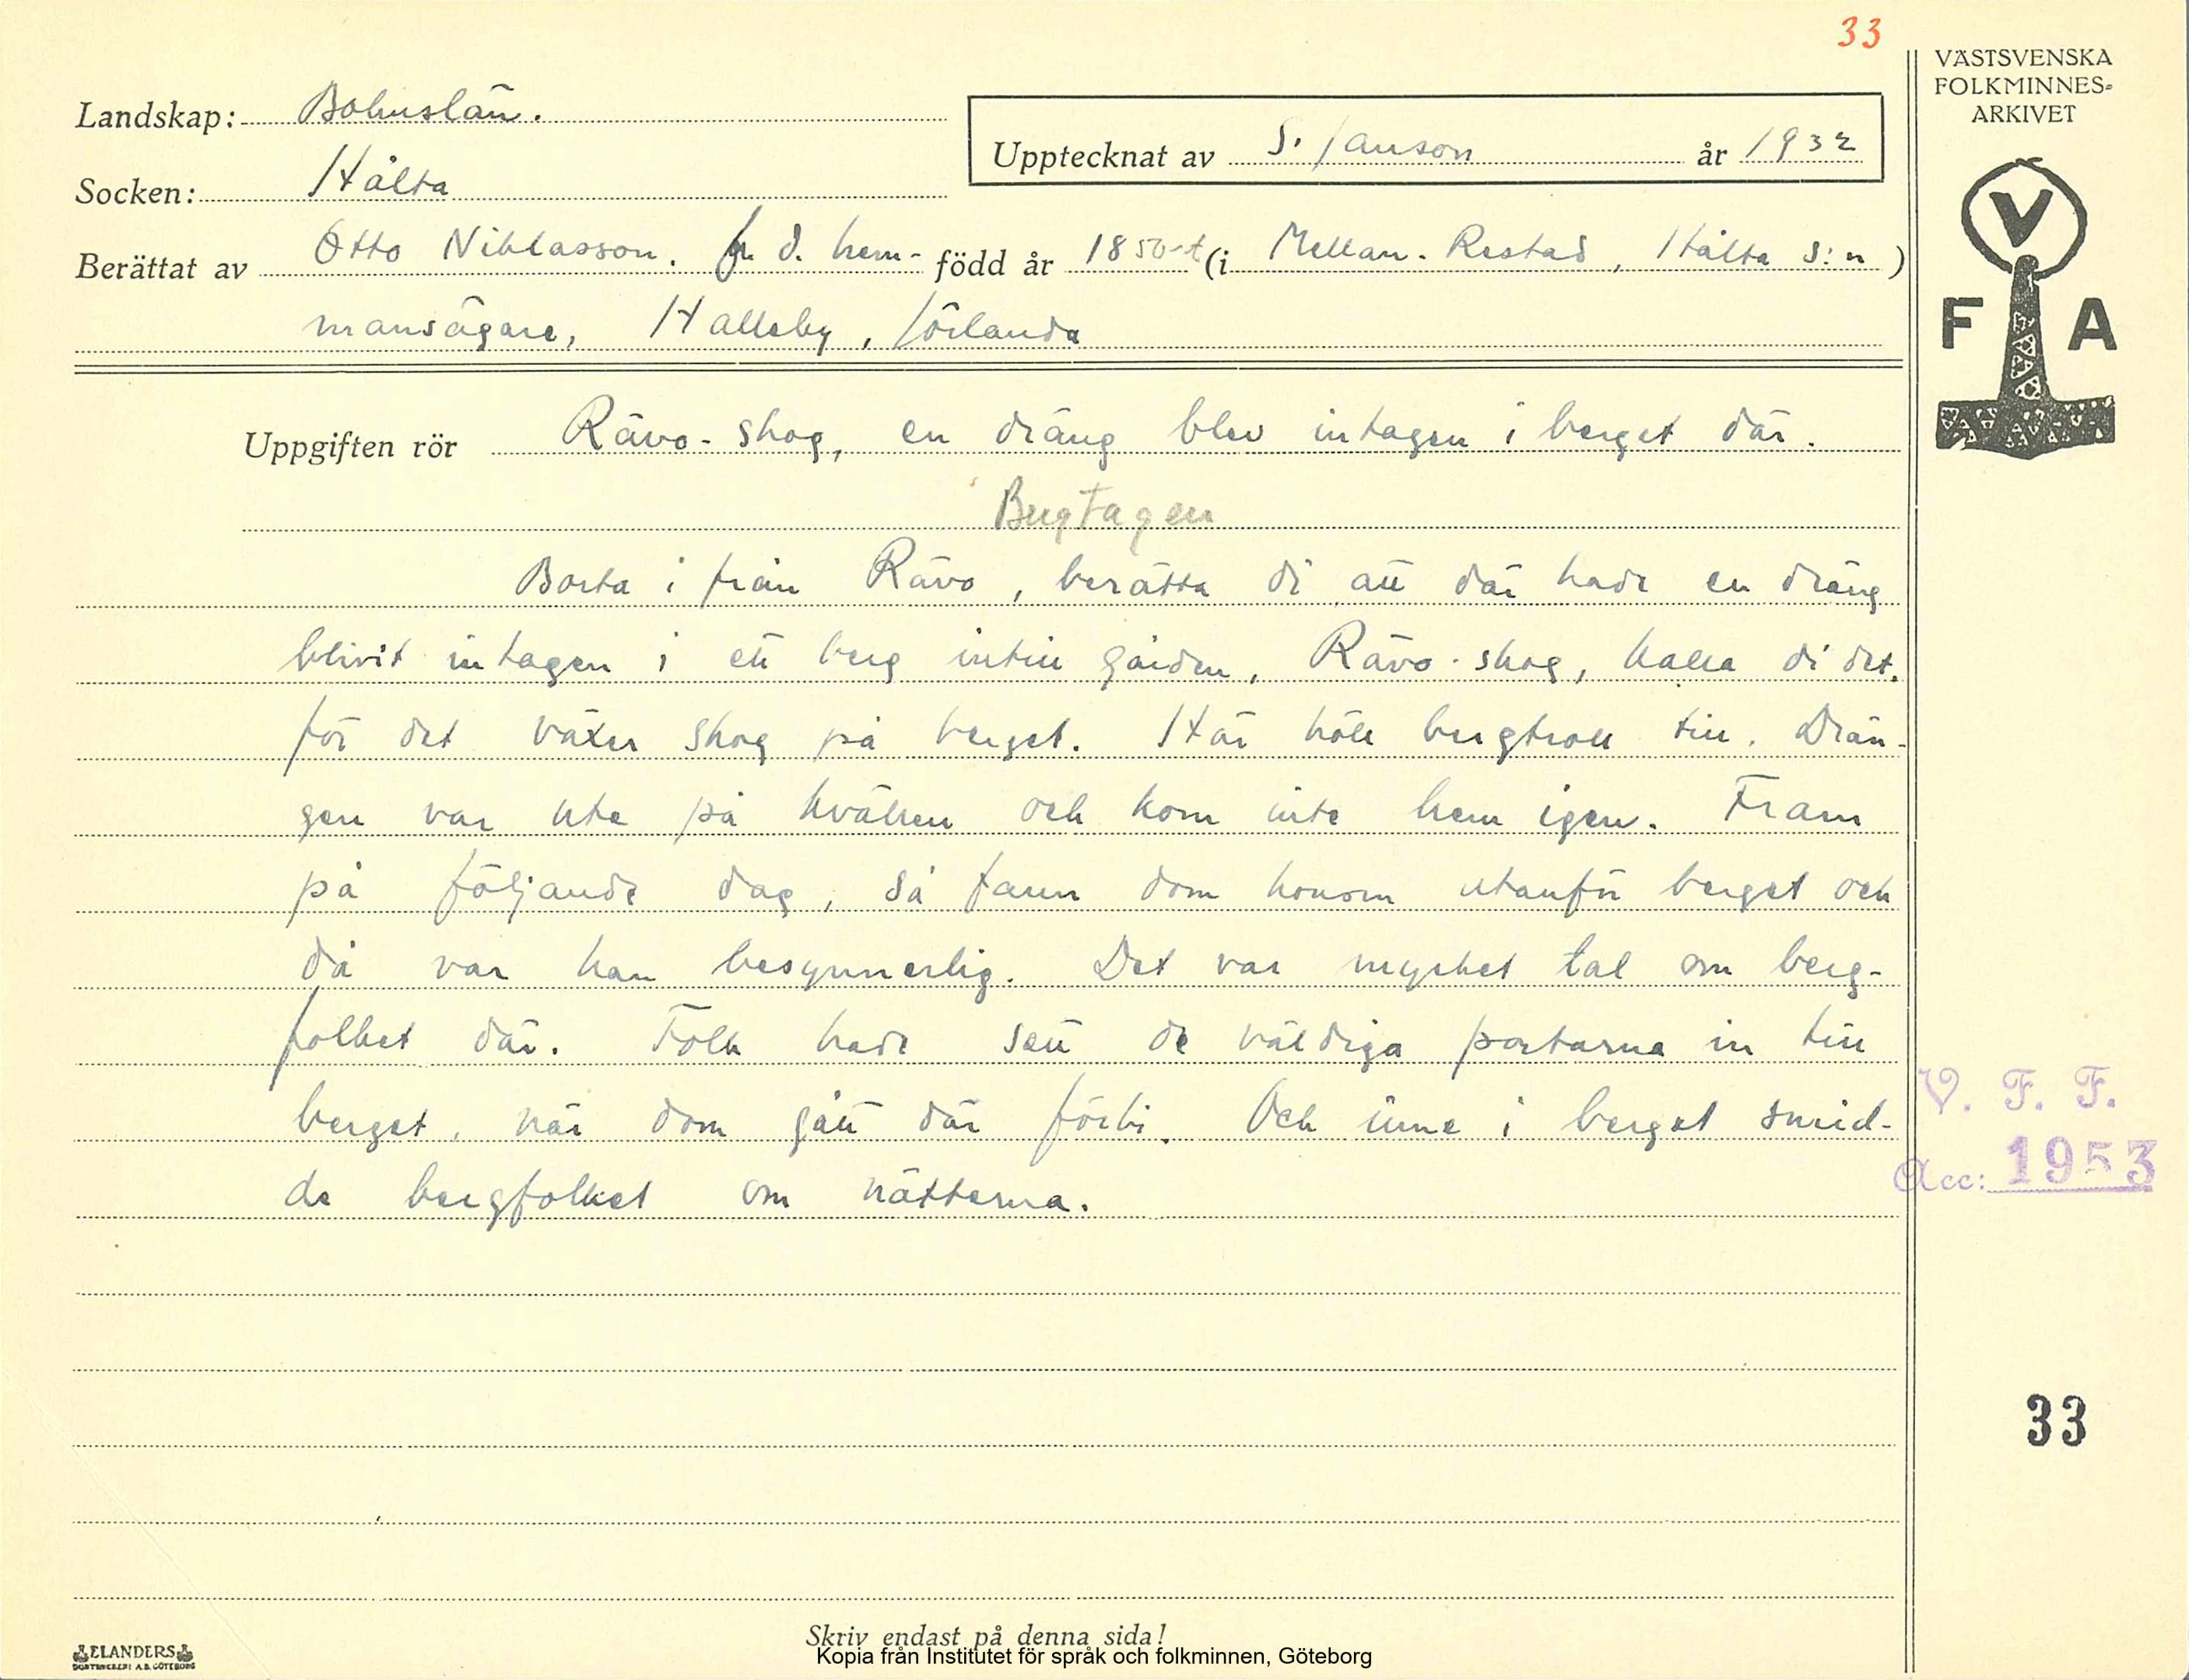 33
VÄSTSVENSKA
FOLKMINNES-
ARKIVET
V
F A
Landskap: Bohuslän.
Upptecknat av S. Janson år 1932
Socken: Hålta
Berättat av Otto Niklasson. f. d. hem- född år 1850-t (i Mellan-Restad, Hålta s:n)
mansägare, Halleby, Jörlanda
Uppgiften rör Rävo-skog, en dräng blev intagen i berget där.
Bergtagen
Borta i från Rävo, berätta di att där hade en dräng
blivit intagen i ett berg intill gården, Rävo-skog, kalla di det,
för det växer skog på berget. Här höll bergtroll till. Drän-
gen var ute på kvällen och kom inte hem igen. Fram
på följande dag, så fann dom honom utanför berget och
då var han besynnerlig. Det var mycket tal om berg-
folket där. Folk hade sett de väldiga portarna in till
berget, när dom gått där förbi. Och inne i berget smid-
de bergfolket om nätterna.
V. F. F.
Acc: 1953
33
Skriv endast på denna sida!
ELANDERS
BOKTRYCKERI A.B. GÖTEBORG
Kopia från Institutet för språk och folkminnen, Göteborg